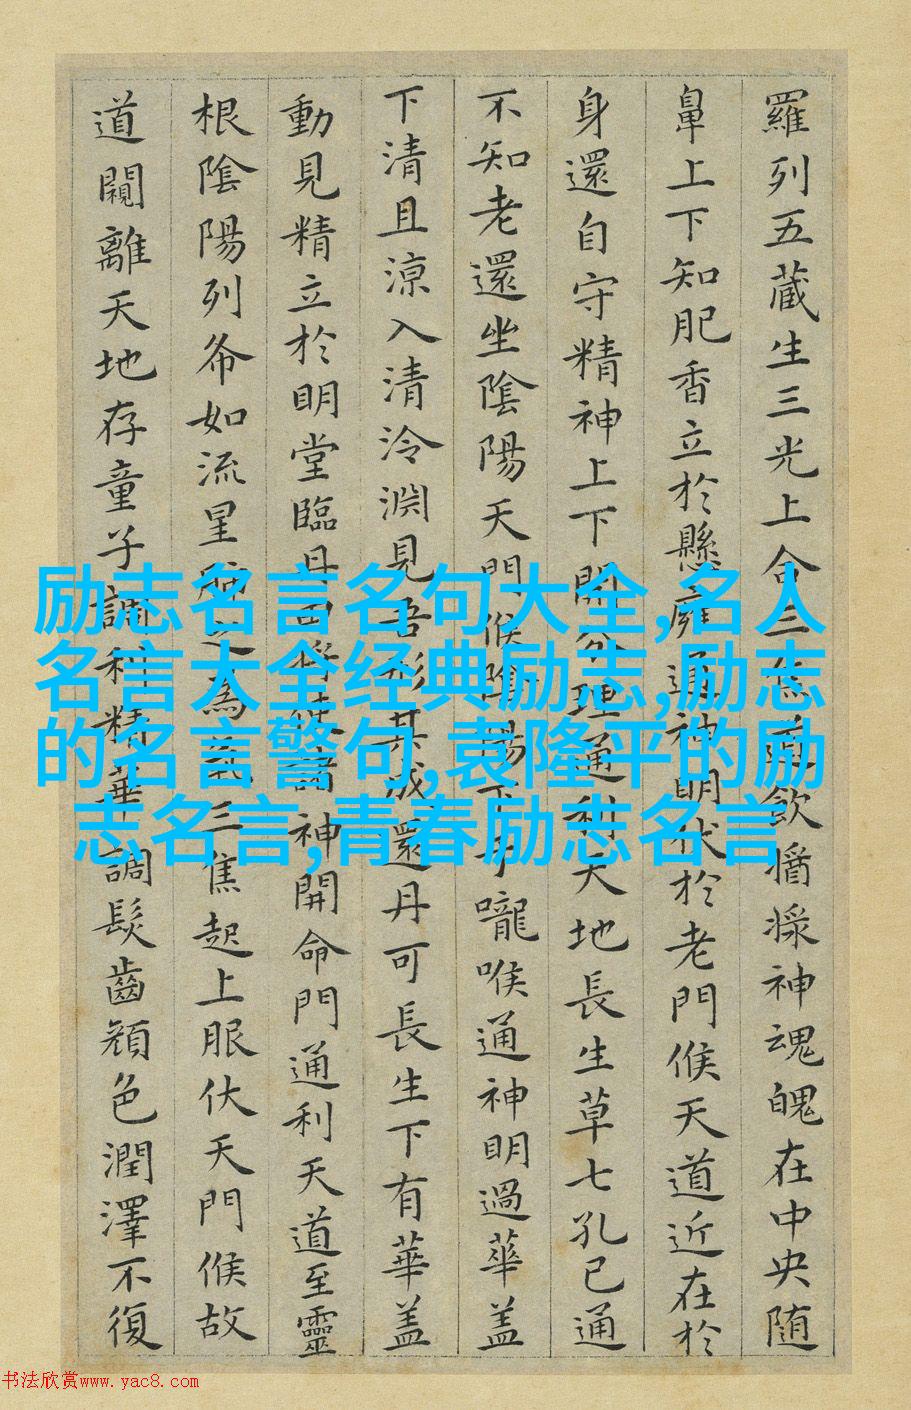 羅列五藏生三光上合三焦道飲漿神魂魄在中央随
鼻上下知肥香立於懸膺通神明伏於老門候天道近在於
身還自守精神上下開分理通利天地長生草七孔已通
不知老還坐陰陽天門候陰陽下于嚨喉通神明過華盖
下清且涼入清泠淵見吾形其成還丹可長生下有華盖
動見精立於明堂臨丹田將使諸神開命門通利天道至靈
根陰陽列布如流星肺之為氣三焦起上服伏天門候故
道闚離天地存童子調利精華調髮齒顏色潤澤不復
励志名言名句大全,名人
名言大全经典励志,励志
的名言警句,袁隆平的励
志名言,青春励志名言
书法欣赏www.yac8.com